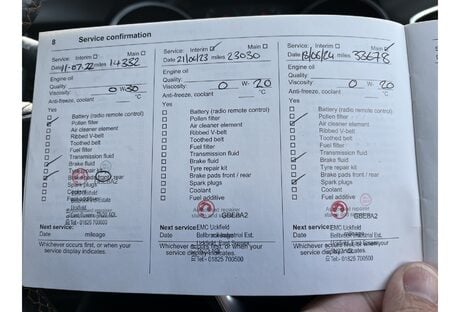 8 Service confirmation
Service: Interim Main
Date 11-07-22 miles 14352
Engine oil
Quality:
Viscosity: 0 W- 30
Anti-freeze, coolant °C
Yes
Battery (radio remote control)
Pollen filter
Air cleaner element
Ribbed V-belt
Toothed belt
Fuel filter
Transmission fluid
Brake fluid
Tyre repair kit
Brake pads front / rear
Spark plugs
Coolant
Fuel additive
GBEBA2
Tel:- 01825 700500
Next service
Date mileage
Whichever occurs first, or when your
service display indicates.
Service: Interim Main
Date 21/06/23 miles 23030
Engine oil
Quality:
Viscosity: 0 W- 20
Anti-freeze, coolant °C
Yes
Battery (radio remote control)
Pollen filter
Air cleaner element
Ribbed V-belt
Toothed belt
Fuel filter
Transmission fluid
Brake fluid
Tyre repair kit
Brake pads front / rear
Spark plugs
Coolant
Fuel additive
GBEBA2
Next service EMC Uckfield
Date Bellbrook Industrial Est.
Uckfield, East Sussex
Whichever occurs first, or when your
service display indicates.
Tel:- 01825 700500
Service: Interim Main
Date miles 33678
Engine oil
Quality:
Viscosity: 0 W- 20
Anti-freeze, coolant °C
Yes
Battery (radio remote control)
Pollen filter
Air element
Ribbed V-belt
Toothed belt
Fuel filter
Transmission fluid
Brake fluid
Tyre repair kit
Brake pads front / rear
Spark plugs
Coolant
Fuel additive
GBEBA2
Next service EMC Uckfield
Date mileage
Bellbrook Industrial Est.
Whichever occurs first, or when your
service display indicates.
Tel:- 01825 700500